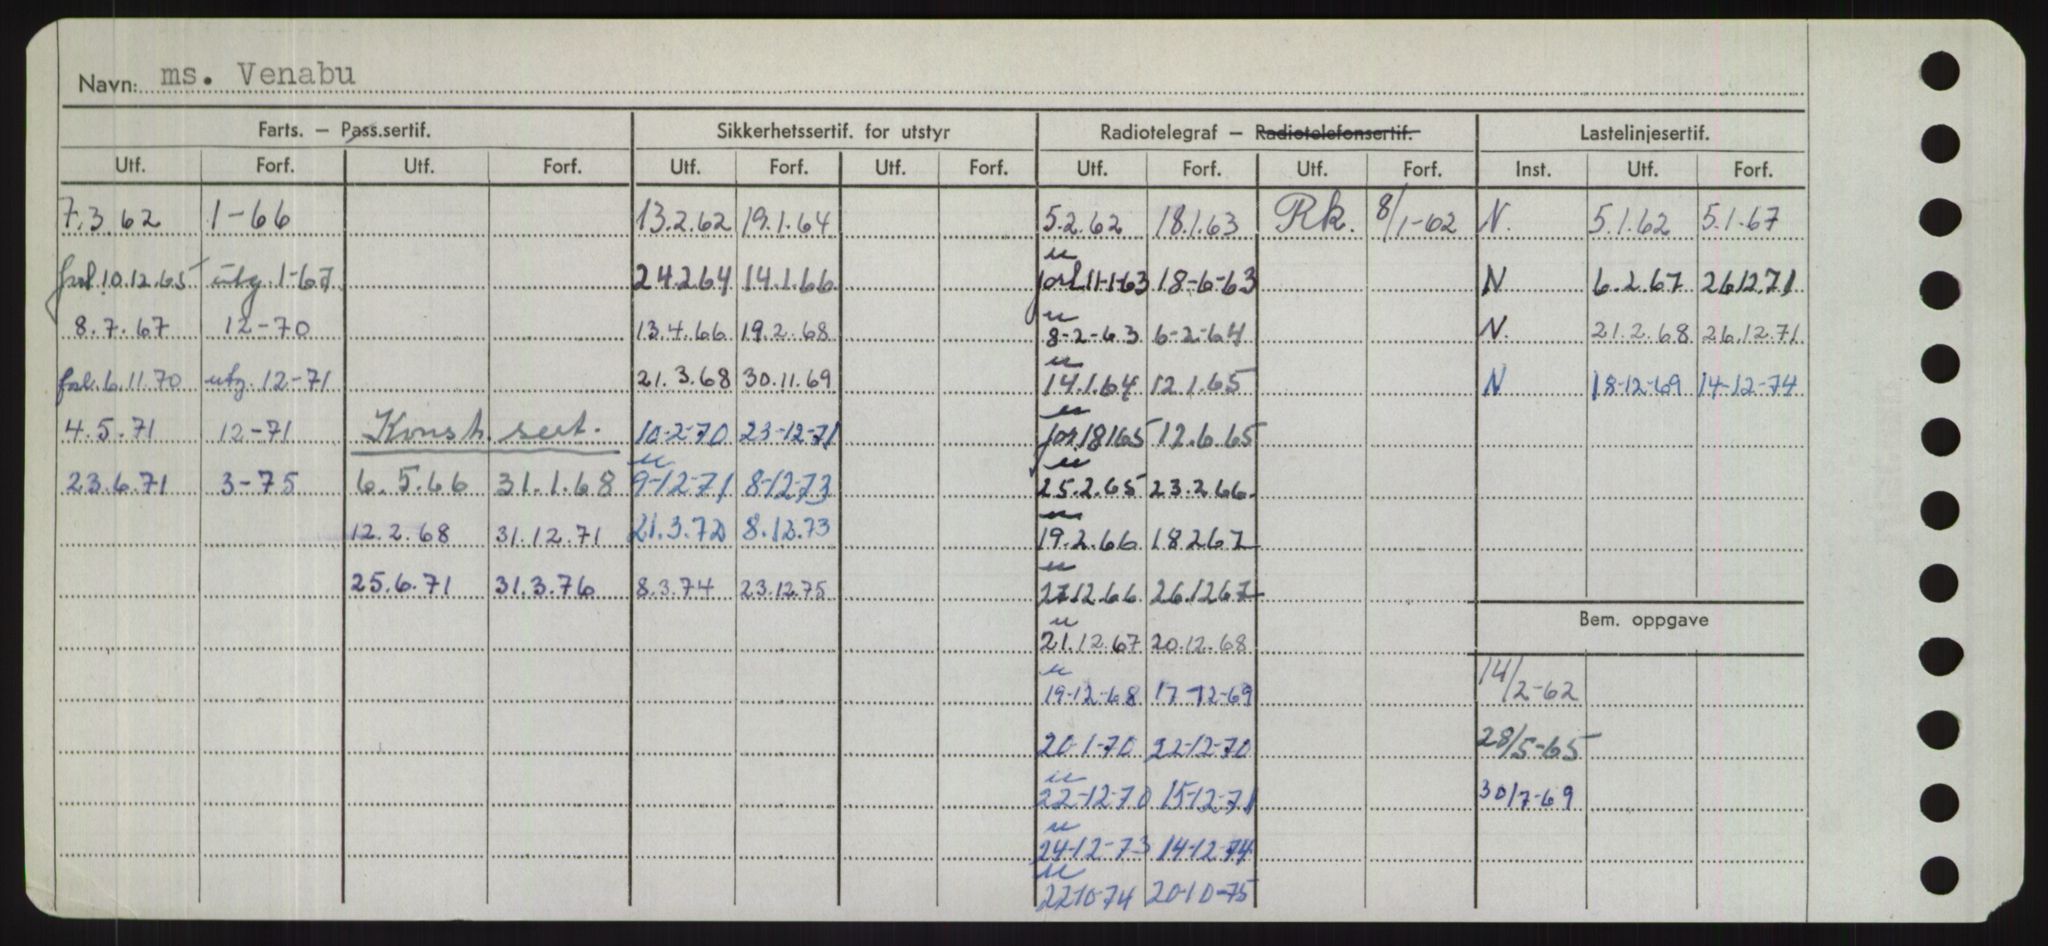 Navn: ms. Venabu
Farts. – Pass.sertif. Sikkerhetssertif. for utstyr Radiotelegraf – Radiotelefonsertif. Lastelinjesertif.
Utf. Forf. Utf. Forf. Utf. Forf. Utf. Forf. Utf. Forf. Utf. Forf. Inst. Utf. Forf.
7.3.62 1-66 13.2.62 19.1.64 5.2.62 18.1.63 Rk. 8/1-62 N. 5.1.62 5.1.67
u
forl 10.12.65 utg. 1-67 24.2.64 14.1.66 forl 11-1-63 18-6-63 N 6.2.67 26.12.71
u
8.7.67 12-70 13.4.66 19.2.68 8-2-63 6-2-64 N. 21.2.68 26.12.71
u
forl. 6.11.70 utg. 12-71 21.3.68 30.11.69 14.1.64 12.1.65 N 18-12-69 14-12-74
u
4.5.71 12-71 Konst. sert. 10-2-70 23-12-71 for 18165 12.6.65
u u
23.6.71 3-75 6.5.66 31.1.68 9-12-71 8-12-73 25.2.65 23.2.66
u
12.2.68 31.12.71 21.3.72 8.12.73 19.2.66 18267
u
25.6.71 31.3.76 8.3.74 23.12.75 27.12.66 26.1267
Bem. oppgave
u
21.12.67 20.12.68
u
19-12-68 17-12-69 14/2-62
20-1-70 22-12-70 28/5-65
u
22-12-70 15-12-71 30/7-69
u
24-12-73 14-12-74
u
22-10-74 20-10-75